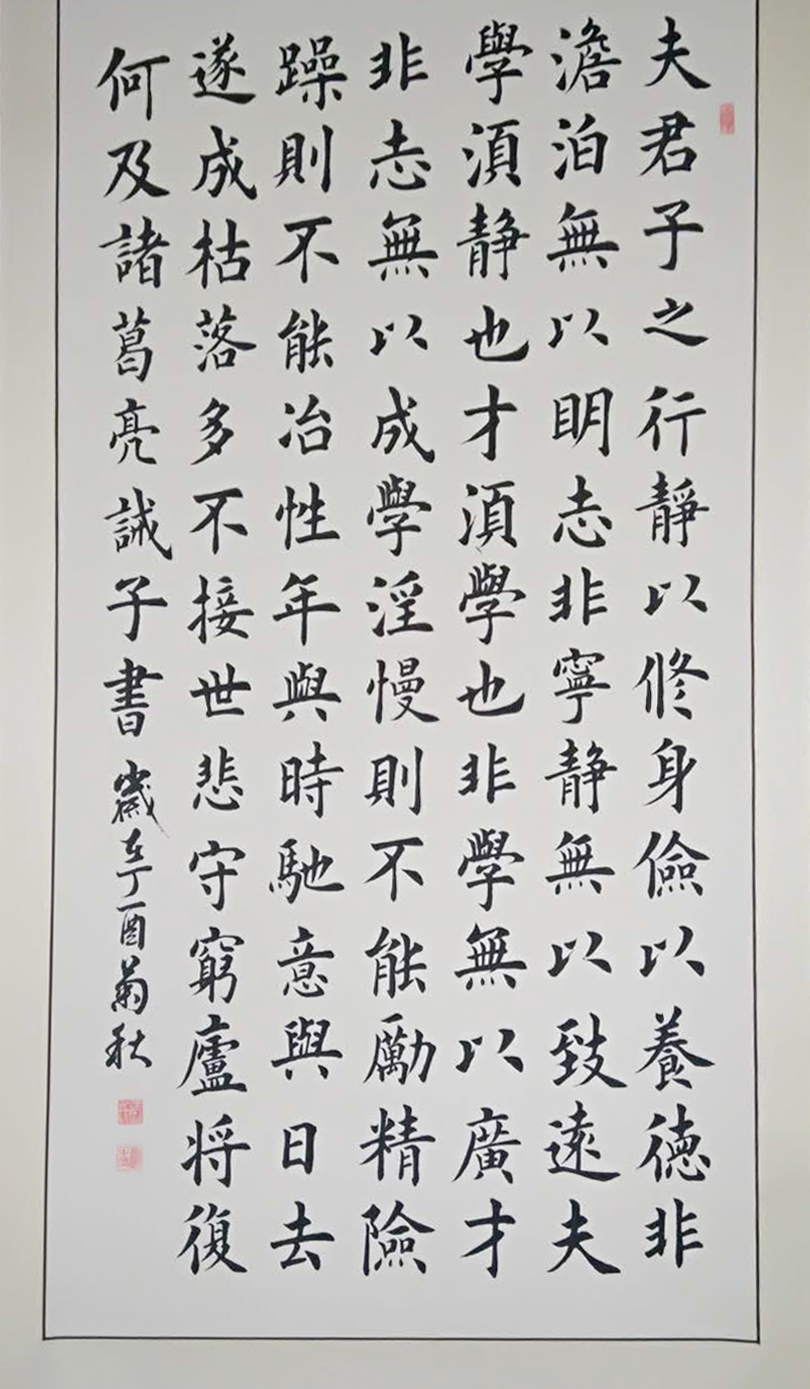 夫君子之行靜以修身儉以養德非
澹泊無以明志非寧静無以致遠夫
學湏静也才湏學也非學無以廣才
非志無以成學淫慢則不能勵精險
躁則不能冶性年與時馳意與日去
遂成枯落多不接世悲守窮廬将復
何及諸葛亮誡子書歲在丁酉菊秋